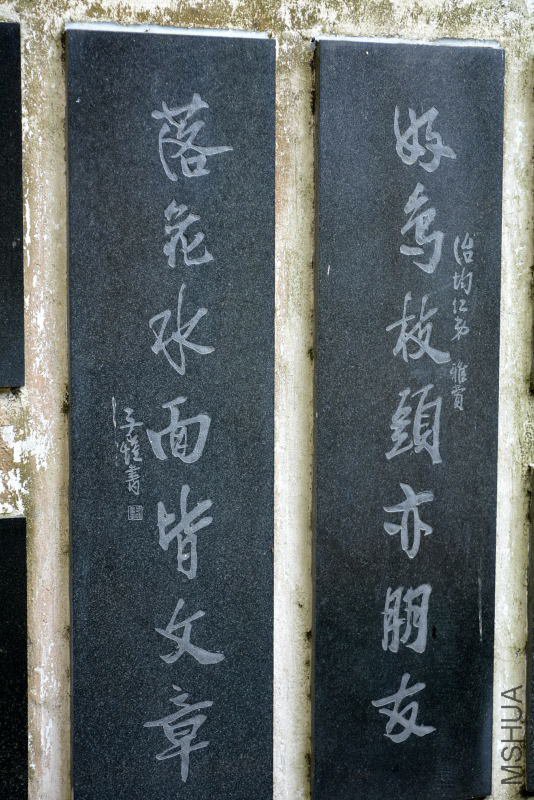 好鳥枝頭亦朋友
治均仁弟 雅賞
落花水面皆文章
子愷書
MSHUA